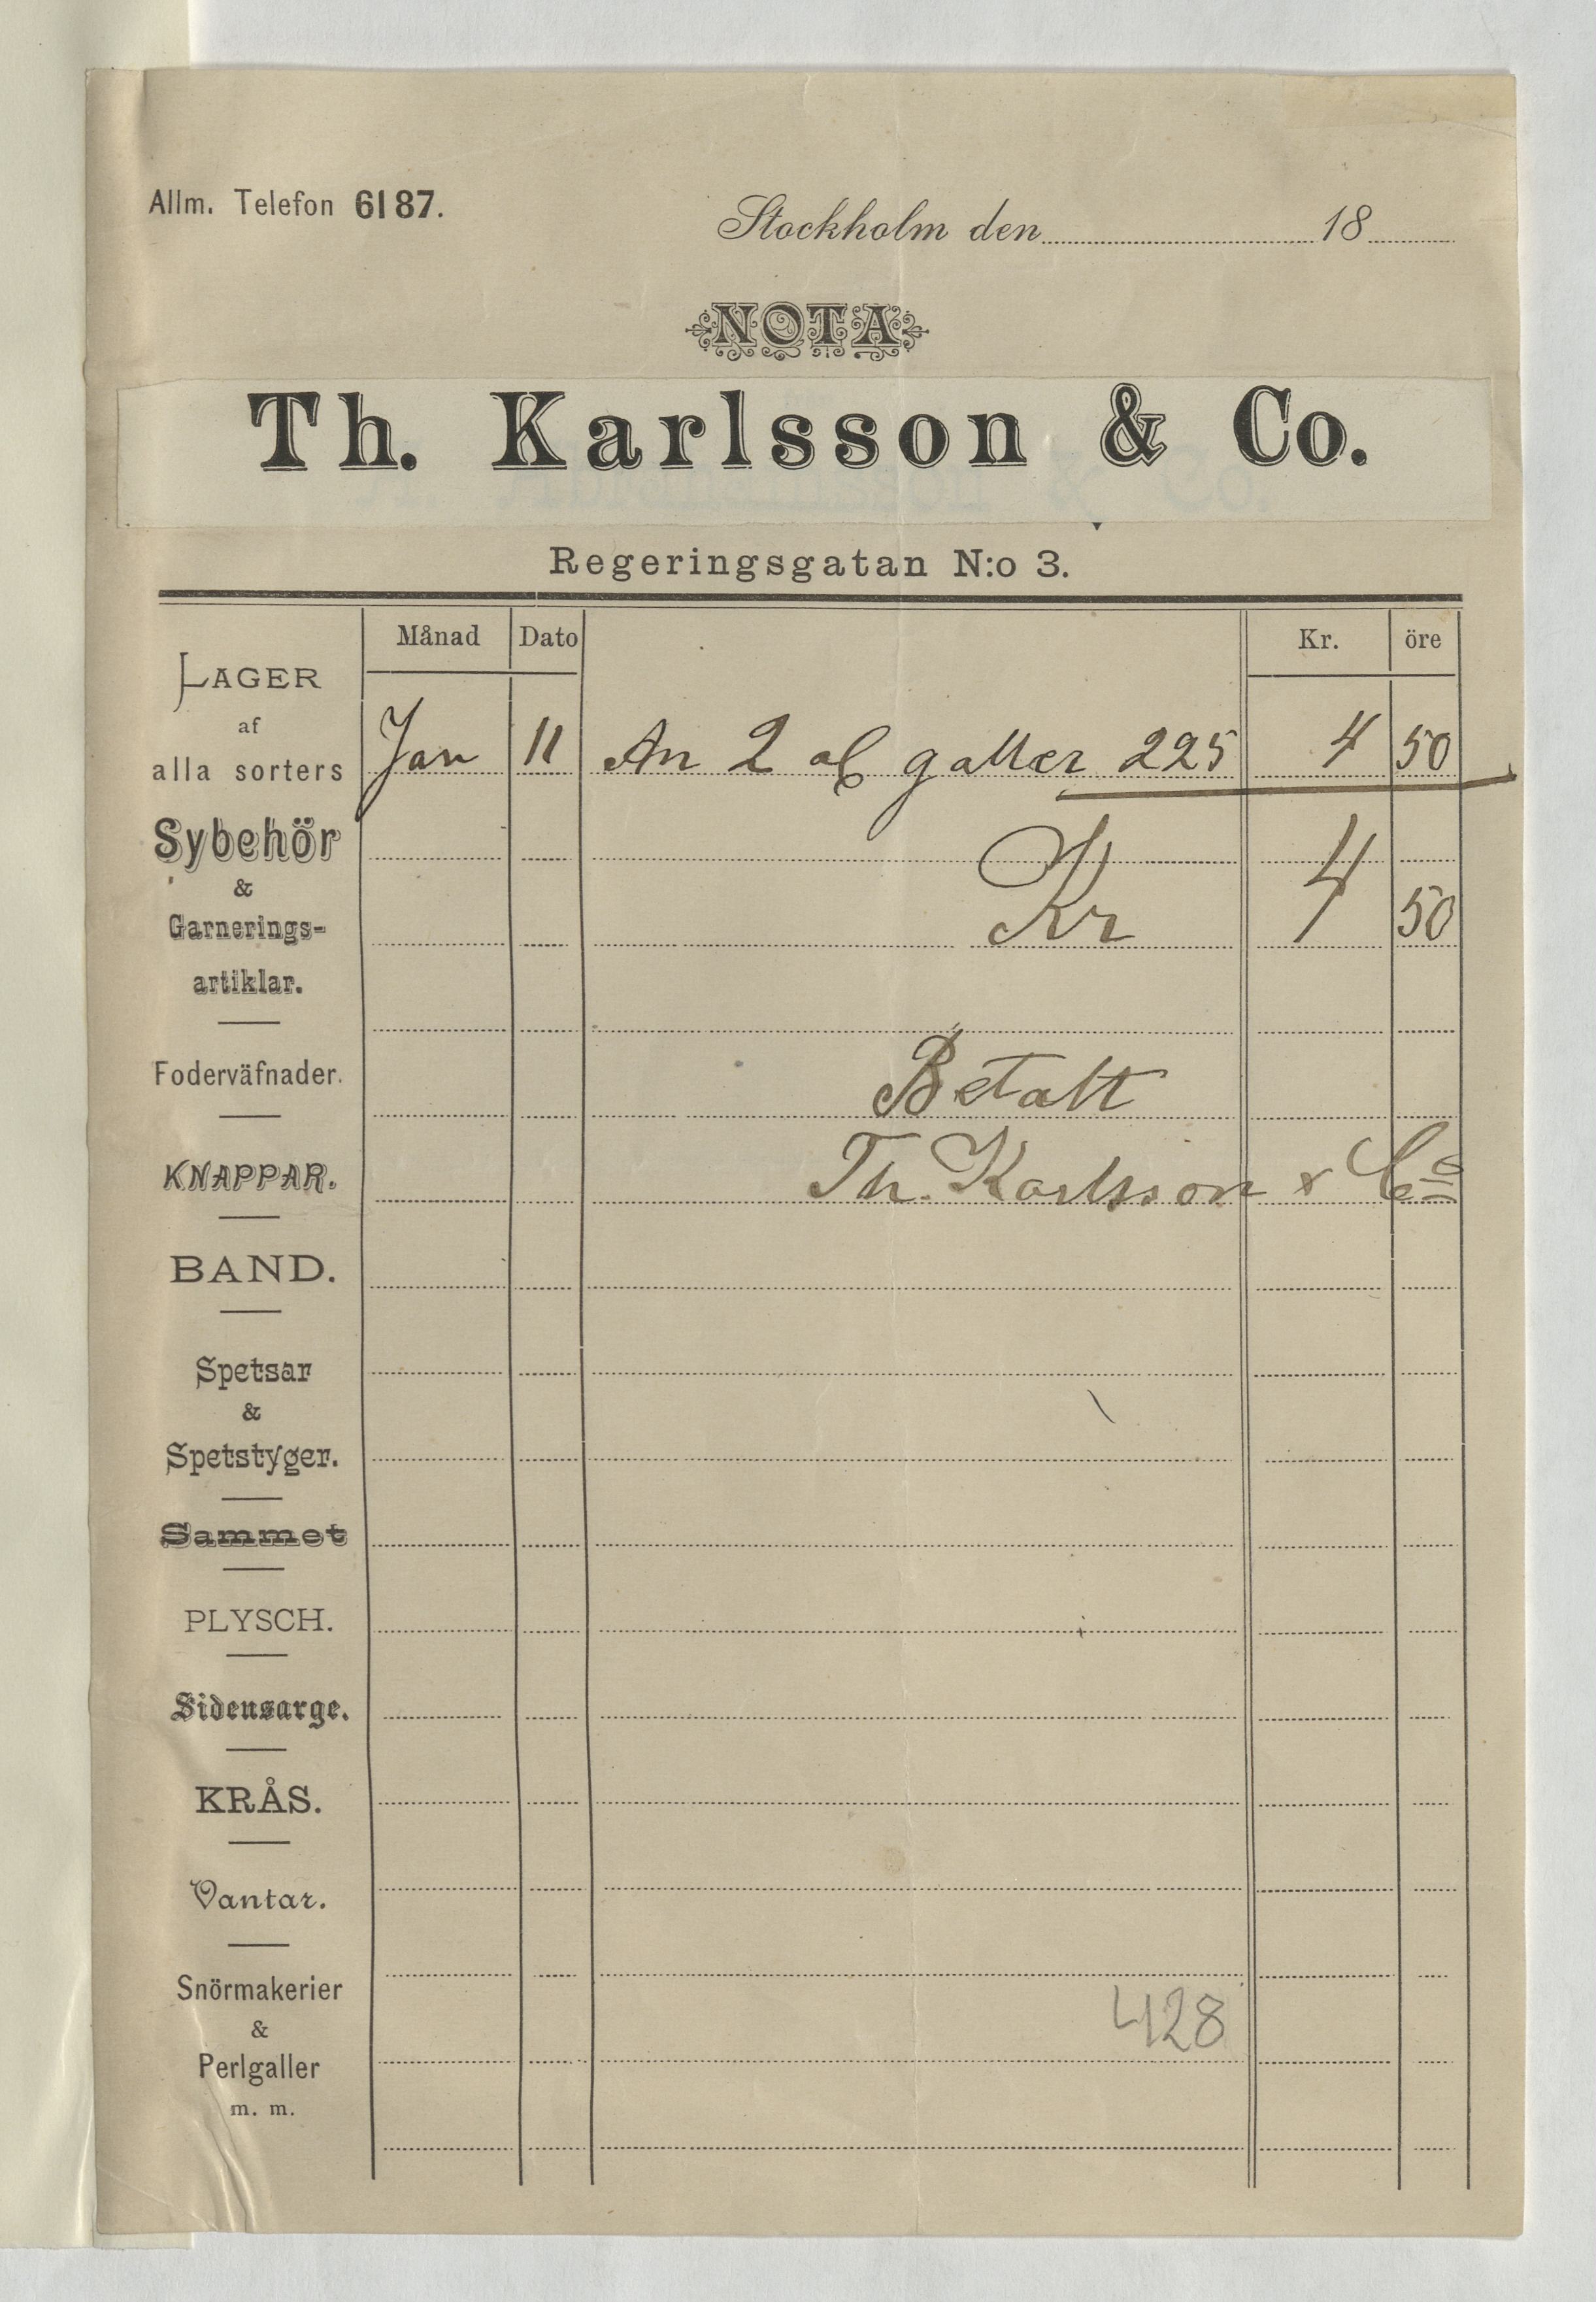 Allm. Telefon 6187.
Stockholm den 18
NOTA
Th. Karlsson & Co.
Regeringsgatan N:o 3.
Månad Dato Kr. öre
LAGER
af
alla sorters
Sybehör
&
Garnerings-
artiklar.
Foderväfnader.
KNAPPAR.
BAND.
Spetsar
&
Spetstyger.
Sammet
PLYSCH.
Sidensarge.
KRÅS.
Vantar.
Snörmakerier
&
Perlgaller
m. m.
Jan 11 An 2 al galler 225 4 50
Kr 4 50
Betalt
Th. Karlsson & Co
428